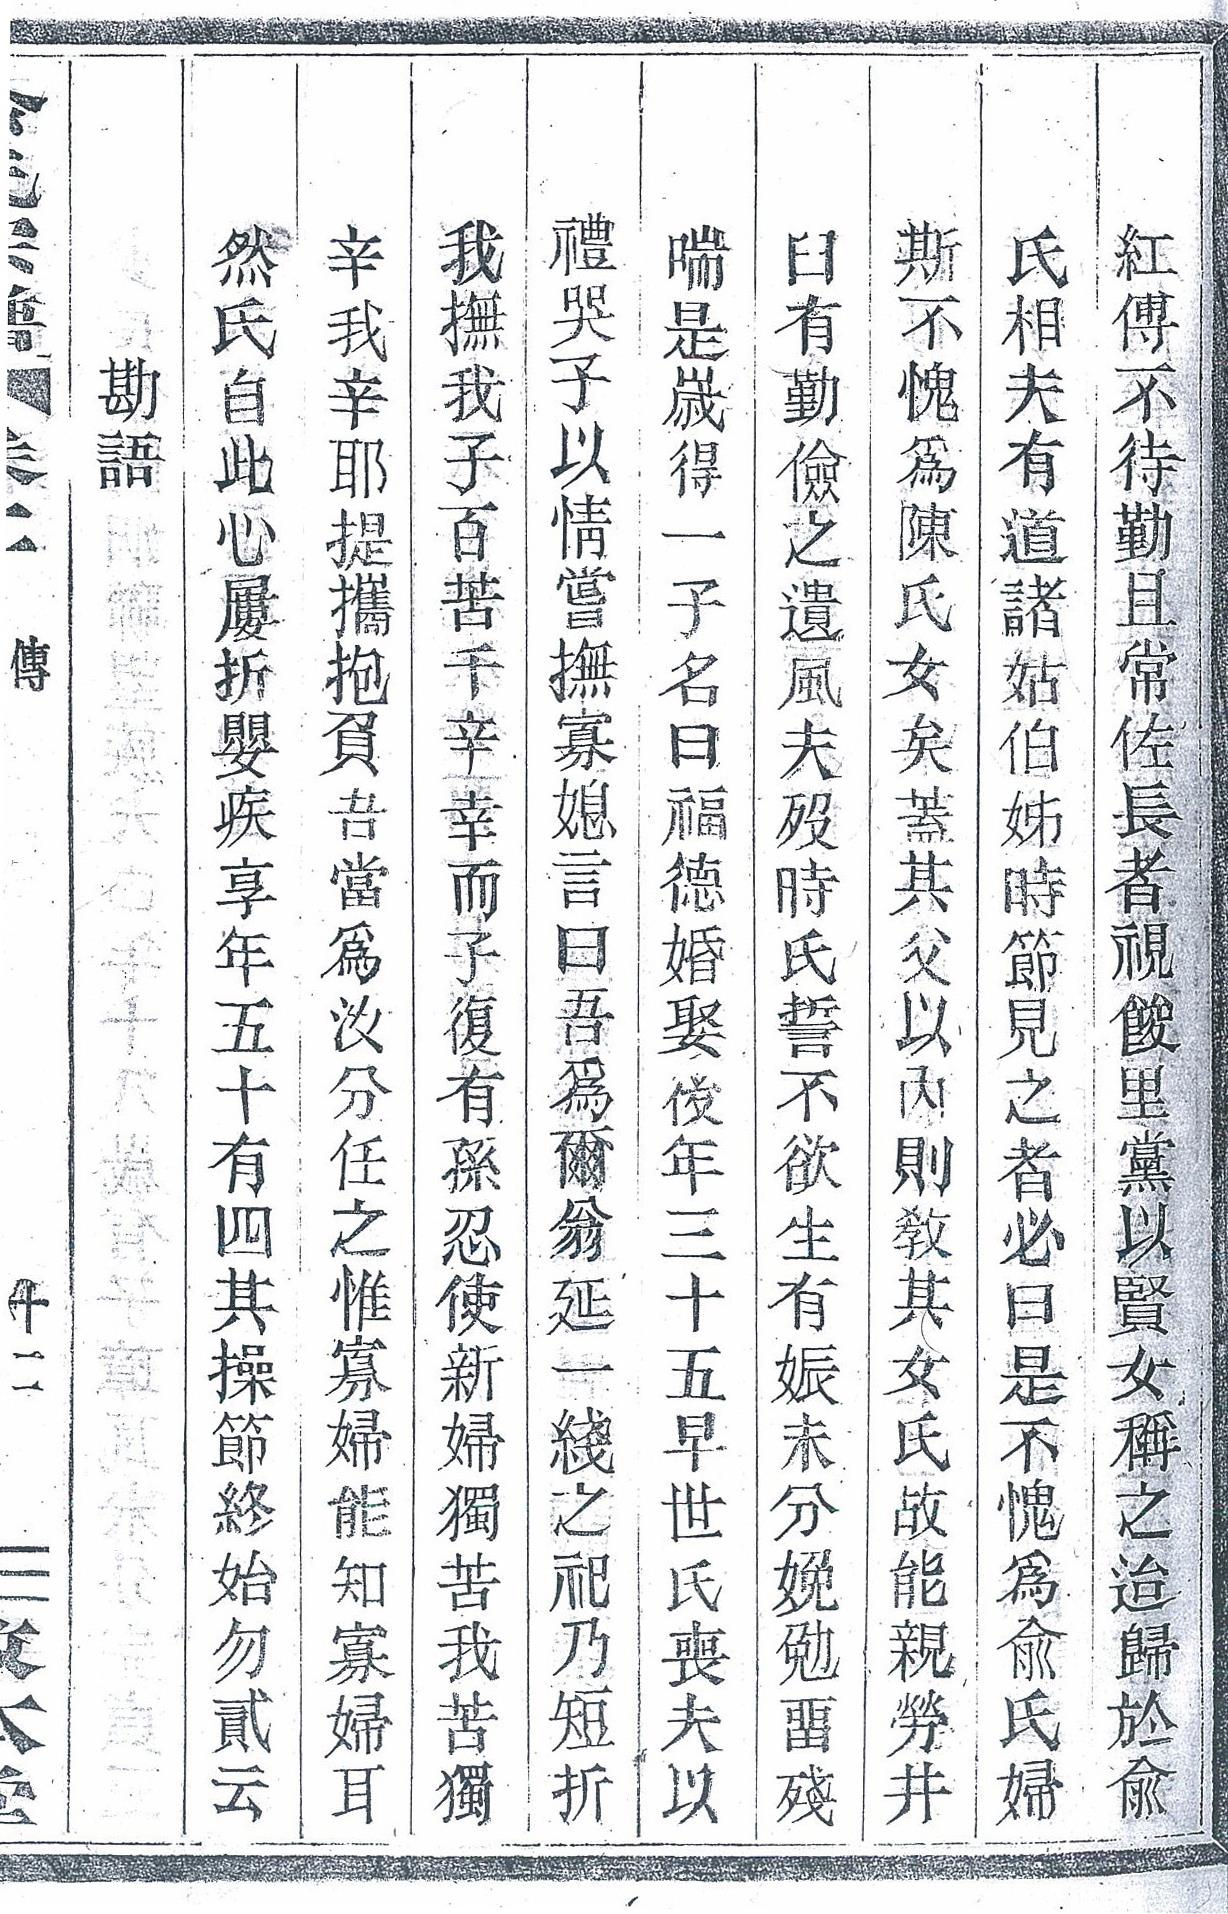 紅傅不待勤且常佐長者視餕里黨以賢女稱之迨歸於俞
氏相夫有道諸姑伯姊時節見之者必曰是不愧爲俞氏婦
斯不愧爲陳氏女矣蓋其父以內則敎其女氏故能親勞井
臼有勤儉之遺風夫歿時氏誓不欲生有娠未分娩勉畱殘
喘是歲得一子名曰福德婚娶後年三十五早世氏喪夫以
禮哭子以情嘗撫寡媳言曰吾爲爾翁延一綫之祀乃短折
我撫我子百苦千辛幸而子復有孫忍使新婦獨苦我苦獨
辛我辛耶提攜抱負吾當爲汝分任之惟寡婦能知寡婦耳
然氏自此心屢折嬰疾享年五十有四其操節終始勿貳云
勘語
卷二 傳